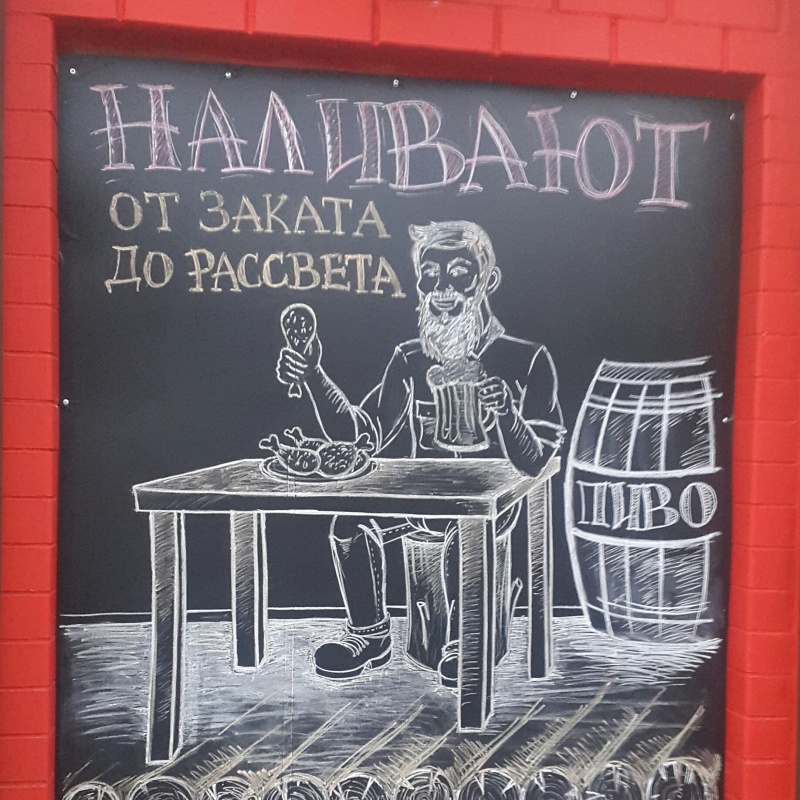 НАЛИВАЮТ
ОТ ЗАКАТА
ДО РАССВЕТА
ПИВО